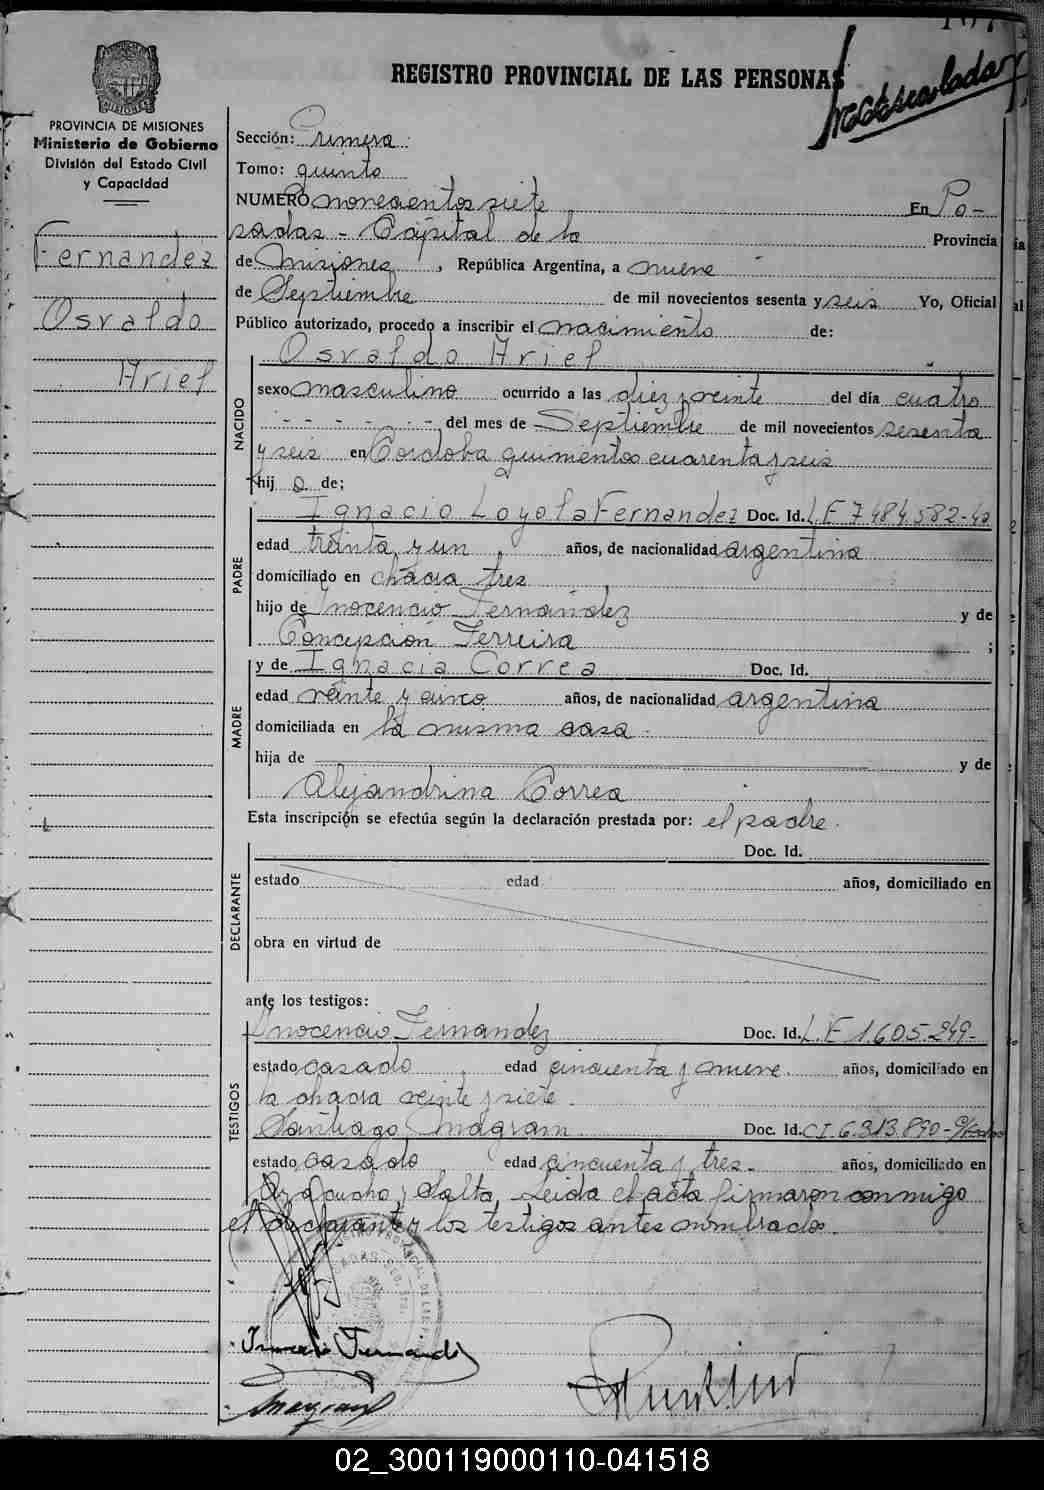 107
REGISTRO PROVINCIAL DE LAS PERSONAS
PROVINCIA DE MISIONES
Ministerio de Gobierno
División del Estado Civil
y Capacidad
Fernandez
Osvaldo
Ariel
Sección: Primera
Tomo: quinto
NUMERO novecientos siete En Po-
sadas - Capital de la Provincia
de Misiones, República Argentina, a nueve
de Septiembre de mil novecientos sesenta y seis Yo, Oficial
Público autorizado, procedo a inscribir el nacimiento de:
Osvaldo Ariel
NACIDO
sexo masculino ocurrido a las diez y veinte del día cuatro
- - - - - - del mes de Septiembre de mil novecientos sesenta
y seis en Córdoba quinientos cuarenta y seis
hij o de;
PADRE
Ignacio Loyola Fernandez Doc. Id. L.E 7.484.582-
edad treinta y un años, de nacionalidad argentina
domiciliado en chacra tres
hijo de Inocencio Fernandez y de
Concepción Ferreira ;
MADRE
y de Ignacia Correa Doc. Id.
edad veinte y cinco años, de nacionalidad argentina
domiciliada en la misma casa.
hija de y de
Alejandrina Correa
Esta inscripción se efectúa según la declaración prestada por: el padre.
DECLARANTE
Doc. Id.
estado edad años, domiciliado en
obra en virtud de
ante los testigos:
TESTIGOS
Inocencio Fernandez Doc. Id. L.E 1.605.249-
estado casado edad cincuenta y nueve. años, domiciliado en
la chacra veinte y siete.
Santiago Doc. Id. C.I. 6.313.890-
estado casado edad cincuenta y tres. años, domiciliado en
Ayacucho y Salta, Leida el acta firmaron conmigo
el declarante y los testigos antes nombrados.
Inocencio Fernandez
02_300119000110-041518